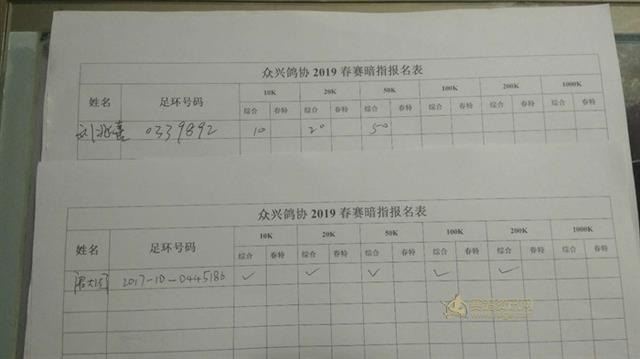 众兴鸽协 2019 春赛暗指报名表
姓名 足环号码 10K 20K 50K 100K 200K 1000K
综合 春特 综合 春特 综合 春特 综合 春特 综合 春特 综合 春特
刘兆喜 0339892 10 20 50
众兴鸽协 2019 春赛暗指报名表
姓名 足环号码 10K 20K 50K 100K 200K 1000K
综合 春特 综合 春特 综合 春特 综合 春特 综合 春特 综合 春特
2017-10-0445186 ✓ ✓ ✓ ✓ ✓